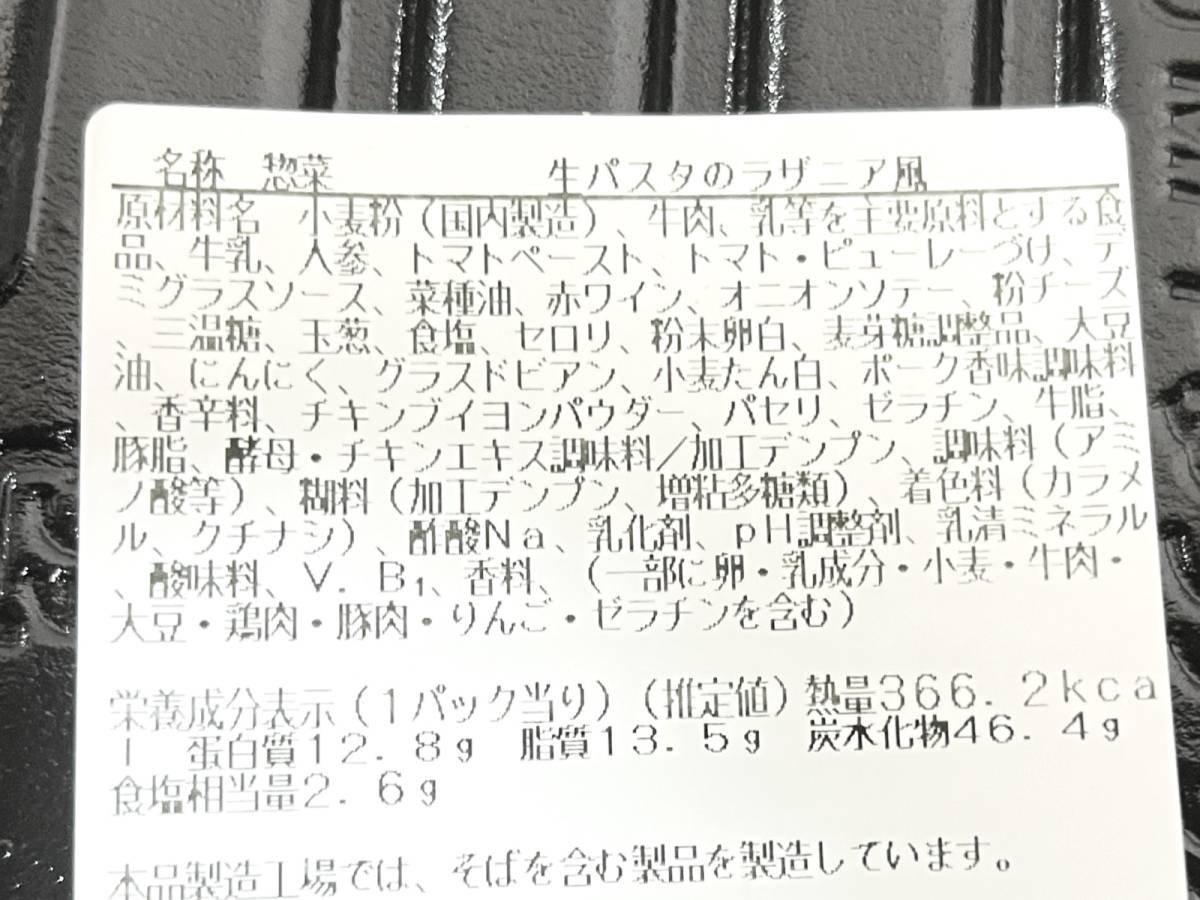 名称 惣菜 生パスタのラザニア風
原材料名 小麦粉(国内製造)、牛肉、乳等を主要原料とする食
品、牛乳、人参、トマトペースト、トマト・ピューレーづけ、デ
ミグラスソース、菜種油、赤ワイン、オニオンソテー、粉チーズ
、三温糖、玉葱、食塩、セロリ、粉末卵白、麦芽糖調整品、大豆
油、にんにく、グラスドビアン、小麦たん白、ポーク香味調味料
、香辛料、チキンブイヨンパウダー、パセリ、ゼラチン、牛脂、
豚脂、酵母・チキンエキス調味料/加工デンプン、調味料(アミ
ノ酸等)、糊料(加工デンプン、増粘多糖類)、着色料(カラメ
ル、クチナシ)、酢酸Na、乳化剤、pH調整剤、乳清ミネラル
、酸味料、V.B₁、香料、(一部に卵・乳成分・小麦・牛肉・
大豆・鶏肉・豚肉・りんご・ゼラチンを含む)
栄養成分表示(1パック当り)(推定値)熱量366.2kca
l 蛋白質12.8g 脂質13.5g 炭水化物46.4g
食塩相当量2.6g
本品製造工場では、そばを含む製品を製造しています。